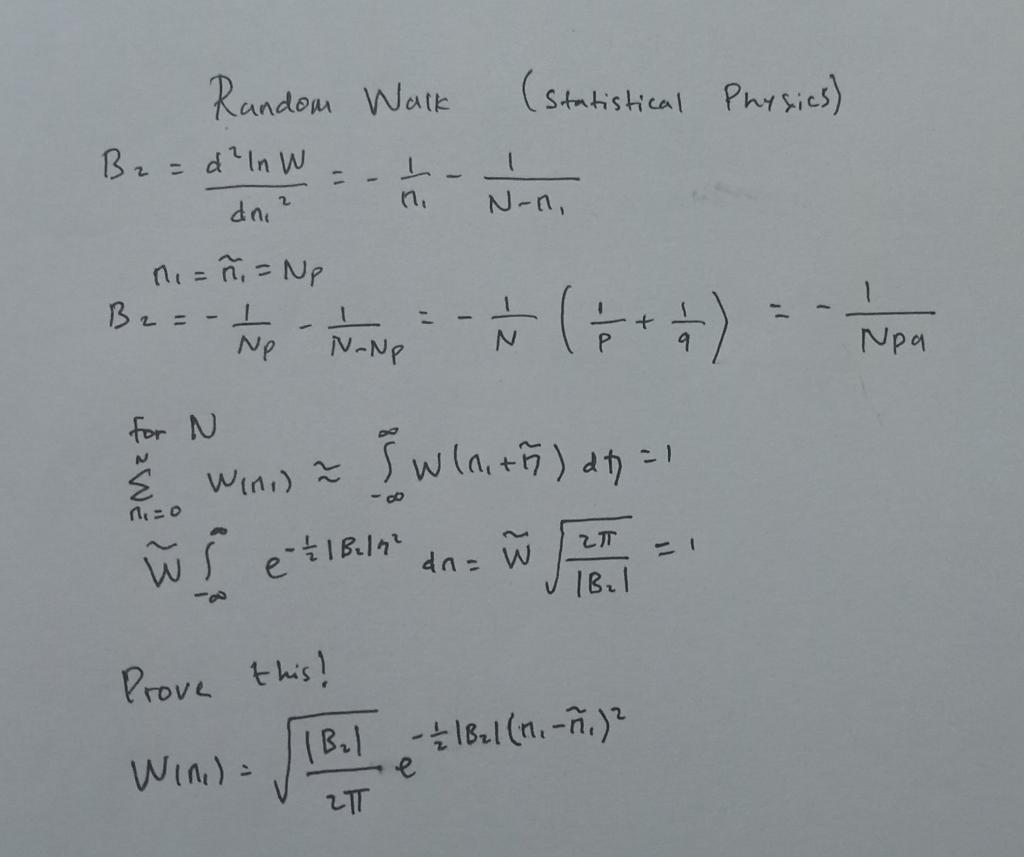 Random Walk (Statistical Physics)
B₂ = d² ln W / dn₁² = - 1/n₁ - 1/(N-n₁)
n₁ = ñ₁ = Np
B₂ = - 1/Np - 1/(N-Np) = - 1/N (1/p + 1/q) = - 1/Npq
for N
∑_{n₁=0}^{N} W(n₁) ≈ ∫_{-∞}^{∞} W(n₁+η̃) dη = 1
W̃ ∫_{-∞}^{∞} e^{-½|B₂|η²} dη = W̃ √(2π/|B₂|) = 1
Prove this!
W(n₁) = √(|B₂|/2π) e^{-½|B₂|(n₁-ñ₁)²}